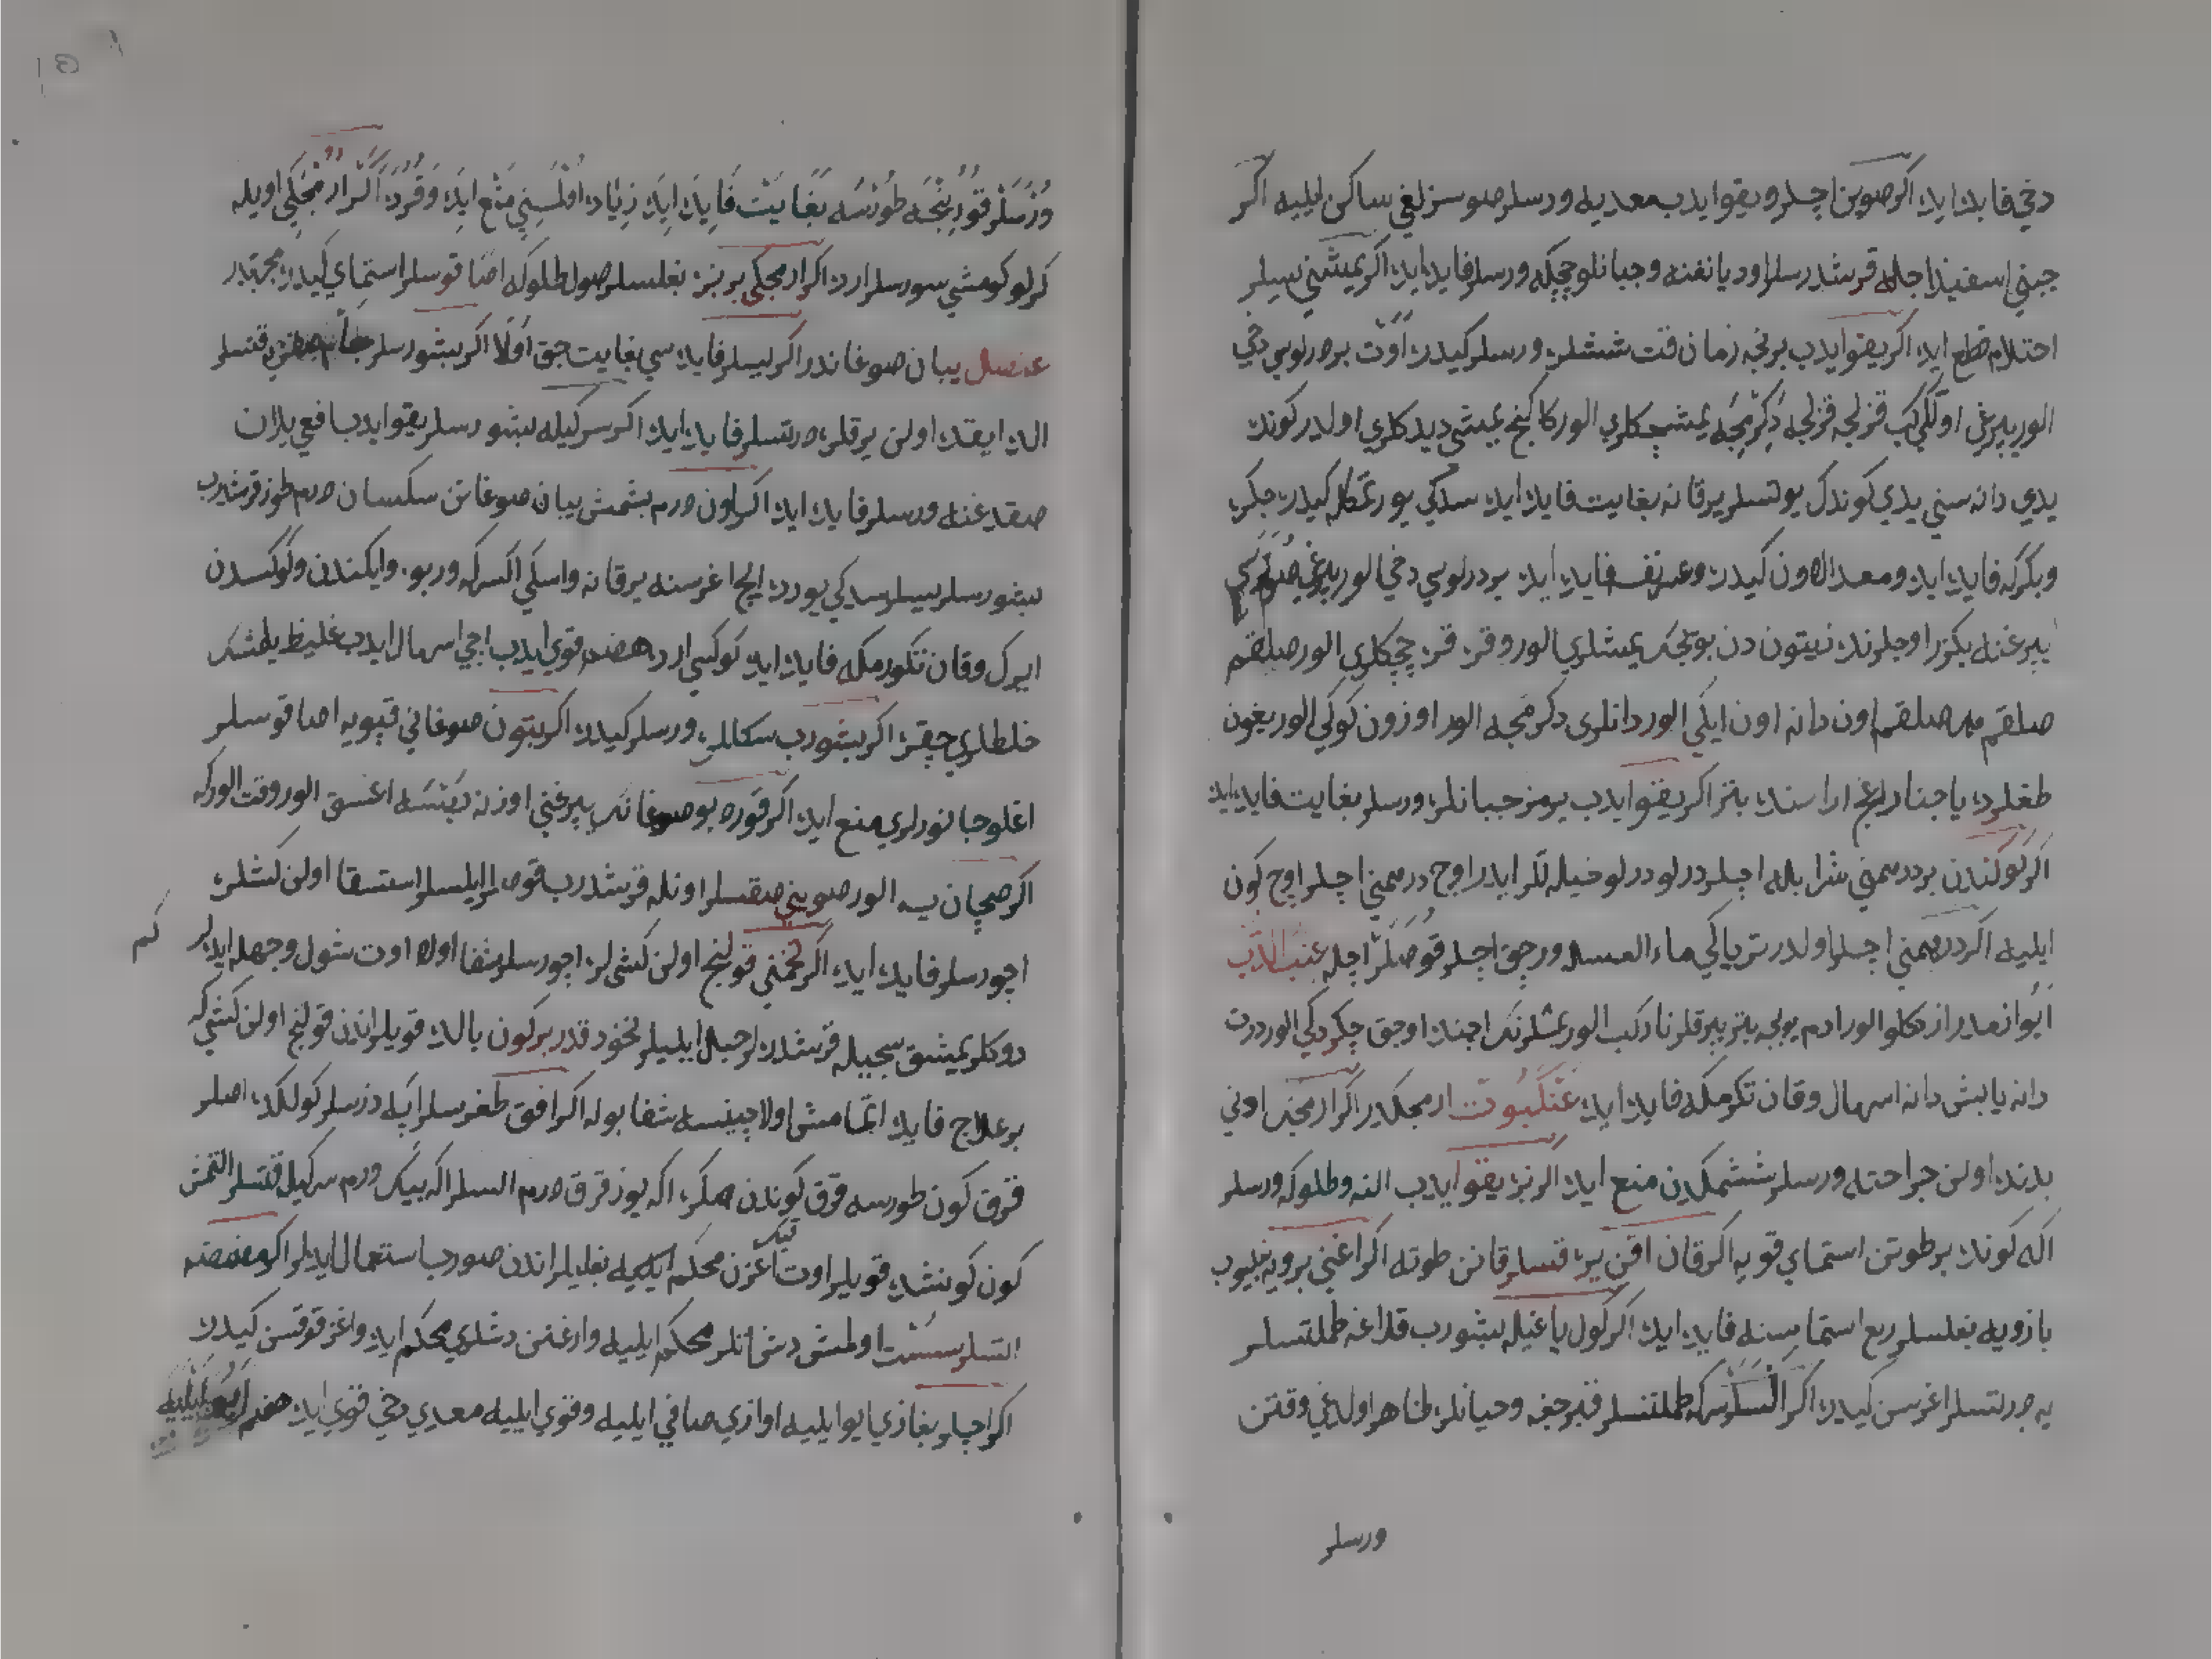 دخي فايده ايده اكر صوين اچسلر ويقو ايدب معديه ورسلر صوسزلغي ساكن ايليه اكر
جبني اسفيداجله قرشدرسلر اود يانغنه وجبانلو چبكه ورسلر فايده ايده اكر يمشني ييسلر
احتلام قطع ايده اكر يقو ايدب برنجه زمان قت ششلره ورسلر كيدره اوت بر درلوسي دخي
الور يپرغي اولكي كب قزلجه قزلجه دكرمجه يمشجكلري الور كاكنج يمشي ديدكلري اولدر كونده
يدي دانه سني يدي كوندك يوتسلر يرقانه بغايت فايده ايده سدكي يورتمكله كيدره جكره
وبكركه فايده ايده ومعده الاون كيدره وعرنفسه فايده ايده بر درلوسي دخي الور يپرغي
يپرغنه بكزر اوجلرنده زيتون دن بويجك يمشلري الور وقره قره چچكلري الور صلقم
صلقم هر صلقم اون دانه اون ايكي الور دانلري دكرمجه الور اوزون كوكي الور يغون
طغلرده يا چنار اغجي اراسنده بتر اكر يقو ايدب يرمز جبانلره ورسلر بغايت فايده ايده
اكر كوكندن بر درهمني شرابله اچسلر درلو درلو خيله لكر ايدر اوچ درهمني اچسلر اوچ كون
ايليه اكر درهمني اچسلر اولدر ترياكي ماء العسله ورچق اچسلر قوصسلر اچله عنب الدب
ايو ازمدر از دكلو الور ادم بويجه بتر يپرقلر نار كب الور يمشلرنك اچنده اوچق چكردكي الور درت
دانه يا بش دانه اسهال وقان تكرمكه فايده ايده عنكبوت ارمجكدر اكر ارمجك اوني
بدنده اولن جراحته ورسلر ششمكدن منع ايده اكر نزه يقو ايدب النه وطلوكه ورسلر
اكه كونده بر طوتن استماي قويه اكر قان اقن يره قتسلر قانن طوته اكر اغني بر ويه بغليوب
بازويه بغلسلر ربع استماسنه فايده ايده اكر كول ياغيله بشورب قلاغه طملتسلر
يه درلتسلر اغرسن كيدره اكر السلر سركه طملتسلر قبرجغه وحيانلره ظاهر اولدغي وقتن
ورسلر
ورسلر قورنجه طورسه بغايت فايده ايده زياده اولمسني منع ايده وقرده اكر ارمجكي اويله
كرلو كومشي سورسلر ارده اكر ارمجكي بر بزه بغلسلر صول طلوكه اصا قوسلر استماي كيدره مجربدر
عنصل يبان صوغاندر اكر ييسلر فايده سي بغايت چق اولا اكر بشورسلر قتسلر
الده ايقده اولن يرقلره درتسلر فايده ايده اكر سركيله بشورسلر يقو ايدب افعي يلان
صقدغنه ورسلر فايده ايده اكر اون درم بشمش يبان صوغانن سكسان درم طوز قرشدرب
بشورسلر ييسلر سدكي يورده ايچ اغرسنه يرقانه واسكي اكسركه وربو وايكندن وكوكسدن
ايرك وقان تكورمكه فايده ايده كوكسي ارده هضم قوي ايدب اچي اسهال ايدب غليظ يلمشك
خلطلري چقره اكر بشورب سكاللره ورسلر كيدره اكر بتون صوغاني قپويه اصا قوسلر
اغلو جانورلري منع ايده اكر قوره بو صوغانك يپرغني اوزنه بصسه اغسق الور وقت الوركه
اكر صچان ييه الور صويني صقسلر اونله قرشدرب قوصلر ايلسلر استسقا اولن كشلره
اچورسلر فايده ايده اكر تخمني قولنج اولن كشيلره اچورسلر شفا اوله اوت شول وجهله ايدلر كم
دوكلر يمشق سجيله قرشدرلر حبلر ايليلر نخود قدر بر كون بالده قويلر اندن قولنج اولن كشي كه
بر علاج فايده اتمامش اولا چينسه شفا بوله اكر افق طغرسلر ايكه دزسلر كولكده اصلر
قرق كون طورسه قرق كوندن صكره اكه يوز قرق درم السلر اكه بيك درم سركيله قتسلر التمش
كون كونشده قويلر اوت اغزن محكم ايليه بغليلر اندن صورب استعمال ايدلر اكر مضمضه
اتسلر سست اولمش دش اتلر محكم ايليه وارغنن دشلري محكم ايده واغز قوقسن كيدره
اكر اچلر بغازي ايو ايليه اوازي صافي ايليه وقوي ايليه معديي دخي قوي ايده هضم